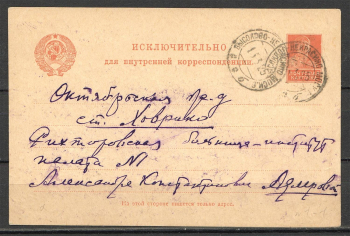 ИСКЛЮЧИТЕЛЬНО
для внутренней корреспонденции.
Октябрьская ж.д
ст. Ховрино
Рихторовская больница-институт
палата №1
Александре Константиновне
На этой стороне пишется только адрес.